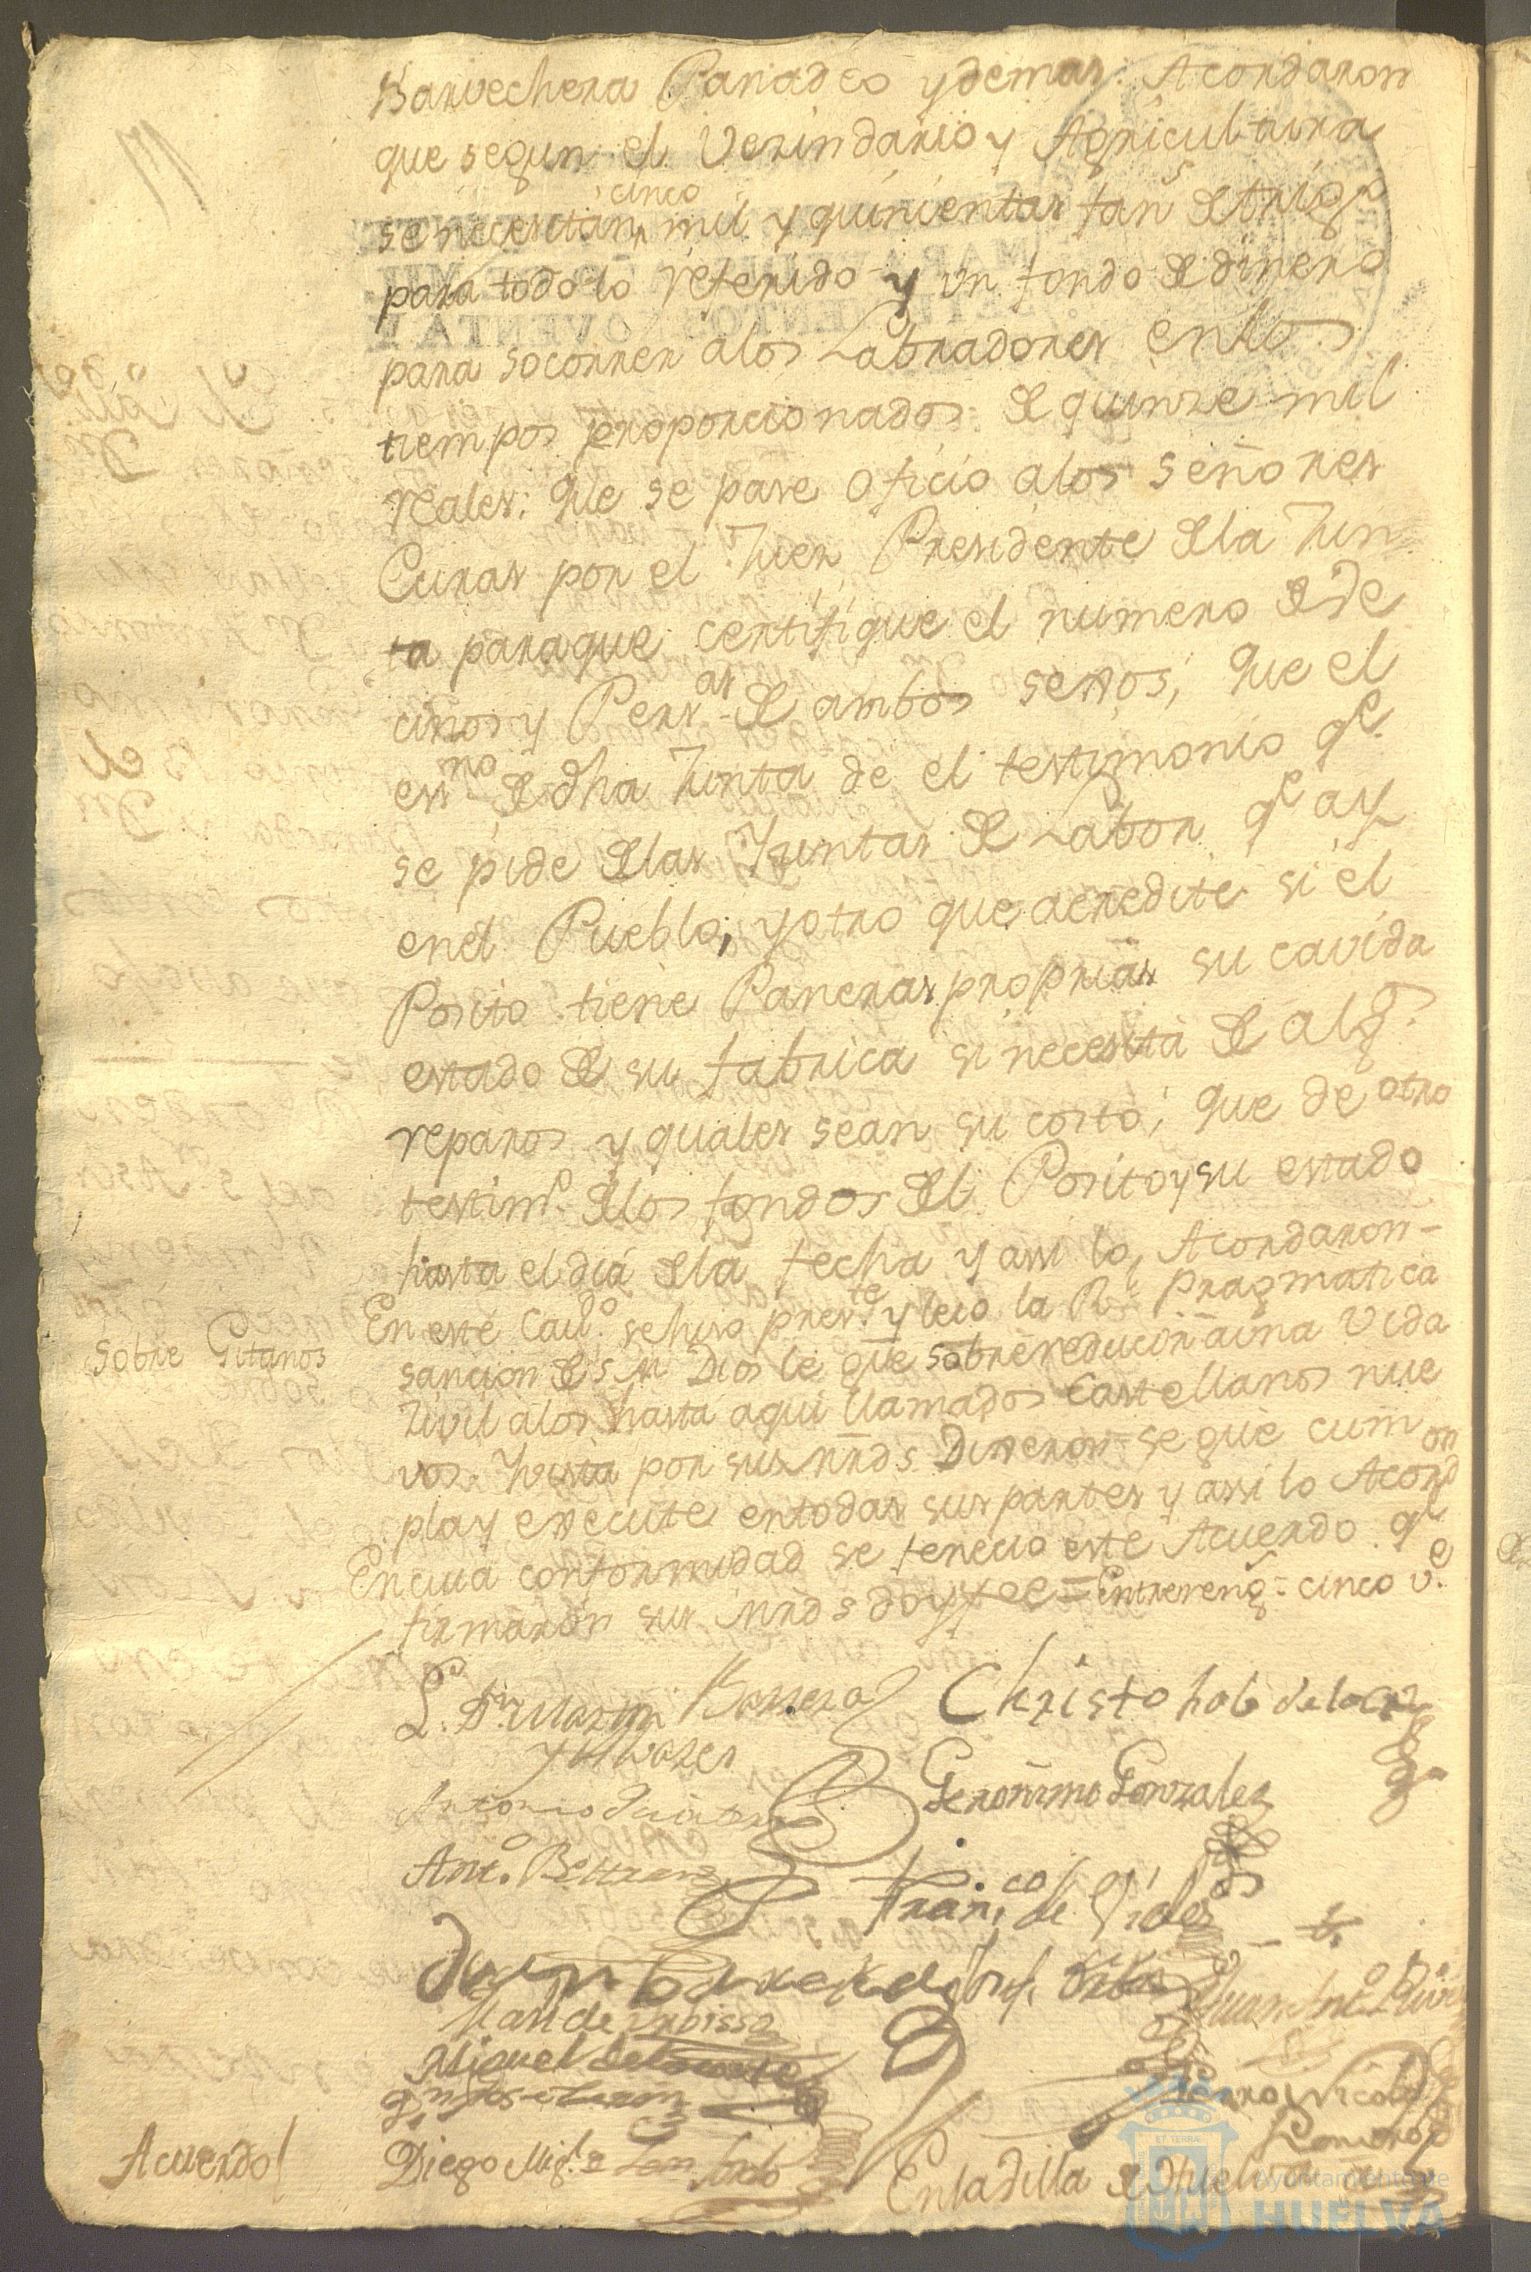 Barvechera Panadeo y demas: Acordaron
que segun el Vecindario y Agricultura
se necesitan cinco mil y quinientas fan.s de trigo
para todo lo referido y un fondo de dinero
para socorrer a los Labradores en los
tiempos proporcionados de quinze mil
reales: que se pase oficio a los Señores
Curas por el Juez Presidente de la Jun
ta para que certifique el numero de Ve
cinos y Pers.as de ambos sexos; que el
es.no de dha Junta de el testimonio q.e
se pide de las Juntas de Labor q.e ay
en el Pueblo; y otro que acredite si el
Posito tiene Paneras proprias su cavida
estado de su fabrica si necesita de alg.s
reparos y quales sean su costo; que de otro
testim.o de los fondos del Posito y su estado
hasta el dia de la fecha y assi lo Acordaron
Sobre Gitanos
En este Cav.o se hiso pres.te y leio la R.l Pragmatica
sancion de S M Dios le gue sobre reducir a una Vida
zivil a los hasta aqui llamados Castellanos nue
vos. Y vista por sus mrds Dixeron se que cum
pla y execute en todas sus partes y assi lo Acord.on
En cuia conformidad se fenecio este Acuerdo q.e
firmaron sus mrds doy fee = Entrereng.s = cinco v.e
L.do D.n Martin Barrera
Christobal de la
Geronimo Gonzales
Antonio
Ant.o Beltran
Fran.co de
Juan
Juan Ant.o
Miguel de la
Pedro Nicolas
Romero
Diego Mig.l
Acuerdo
En la Villa de Huelva
Ayuntamiento de
HUELVA